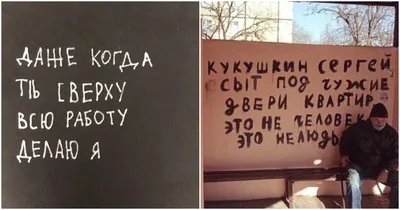 ДАЖЕ КОГДА
ТЫ СВЕРХУ
ВСЮ РАБОТУ
ДЕЛАЮ Я
КУКУШКИН СЕРГЕЙ
СЫТ ПОД ЧУЖИЕ
ДВЕРИ КВАРТИР
ЭТО НЕ ЧЕЛОВЕК
ЭТО НЕЛЮДЬ